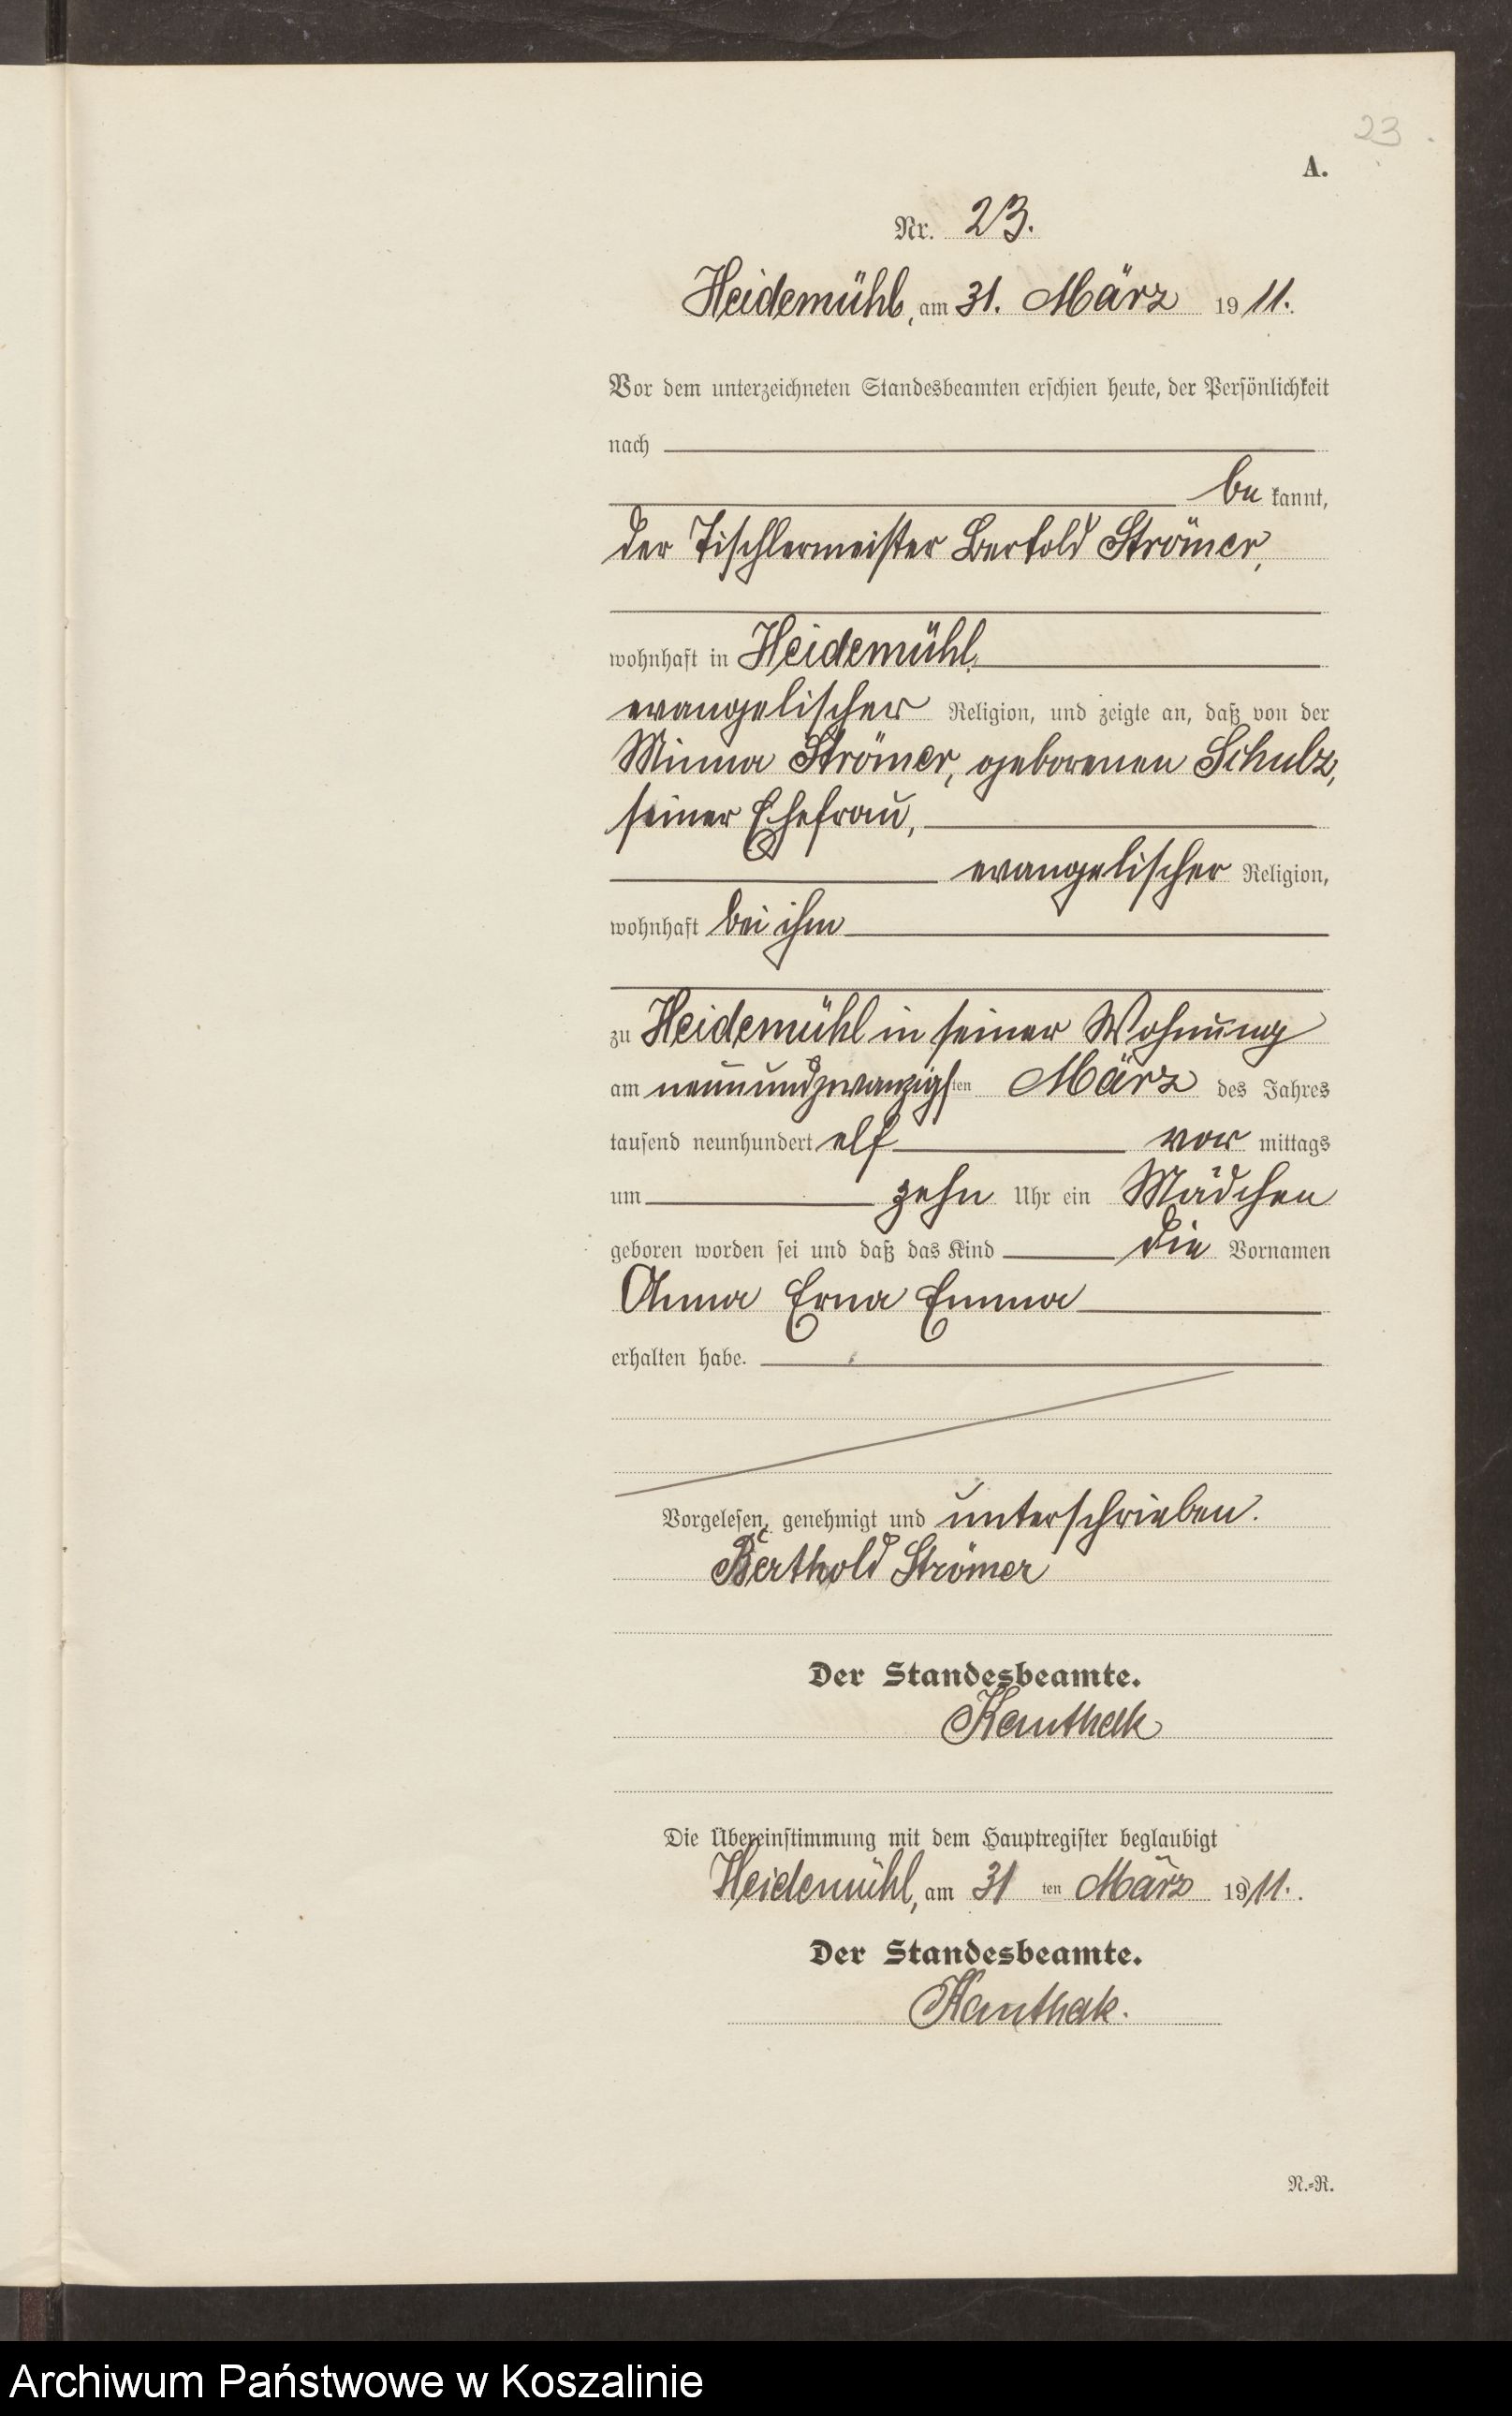 23.
A.
Nr. 23.
Heidemühl, am 31. März 1911.
Vor dem unterzeichneten Standesbeamten erschien heute, der Persönlichkeit
nach
be kannt,
der Tischlermeister Bertold Strömer,
wohnhaft in Heidemühl,
evangelischer Religion, und zeigte an, daß von der
Minna Strömer, geborenen Schulz,
seiner Ehefrau,
evangelischer Religion,
wohnhaft bei ihm
zu Heidemühl in seiner Wohnung
am neunundzwanzigsten März des Jahres
tausend neunhundert elf vor mittags
um zehn Uhr ein Mädchen
geboren worden sei und daß das Kind die Vornamen
Anna Erna Emma
erhalten habe.
Vorgelesen, genehmigt und unterschrieben.
Berthold Strömer
Der Standesbeamte.
Kauthak
Die Übereinstimmung mit dem Hauptregister beglaubigt
Heidemühl, am 31 ten März 1911.
Der Standesbeamte.
Kauthak.
N.-R.
Archiwum Państwowe w Koszalinie